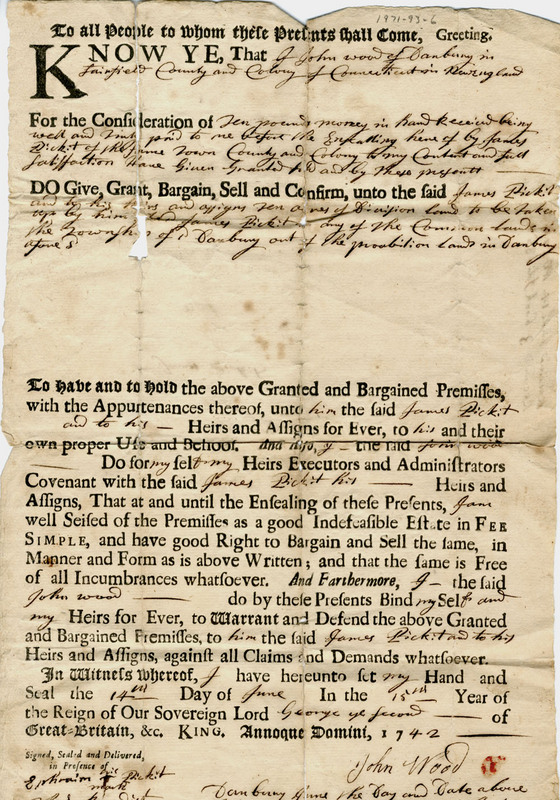 1971-93-6
To all People to whom these Presents shall Come, Greeting.
KNOW YE, That I John wood of Danbury in
Fairfield County and Colony of Connecticut in New England
For the Consideration of Ten pounds money in hand Received being
well and truly paid to me before the Ensealing hereof by James
Pickit of the same Town County and Colony to my Content and full
Satisfaction Have Given Granted and by these presents
DO Give, Grant, Bargain, Sell and Confirm, unto the said James Pickit
and to his Heirs and assigns Ten Acres of Division land to be taken
up by him said James Pickit in any of the Common lands in
the Township of sd Danbury out of the prohibition lands in Danbury
afores d
To have and to hold the above Granted and Bargained Premisses,
with the Appurtenances thereof, unto him the said James Pickit
and to his — Heirs and Assigns for Ever, to his and their
own proper Use and Behoof. And also, I — the said John wood
— Do for my self & my Heirs Executors and Administrators
Covenant with the said James Pickit his — Heirs and
Assigns, That at and until the Ensealing of these Presents, I am
well Seised of the Premisses as a good Indefeasible Estate in FEE
SIMPLE, and have good Right to Bargain and Sell the same, in
Manner and Form as is above Written; and that the same is Free
of all Incumbrances whatsoever. And Farthermore, I — the said
John wood — do by these Presents Bind my Self and
my Heirs for Ever, to Warrant and Defend the above Granted
and Bargained Premisses, to him the said James Pickit and to his
Heirs and Assigns, against all Claims and Demands whatsoever.
In Witness whereof, I have hereunto set my Hand and
Seal the 14th Day of June In the 15th Year of
the Reign of Our Sovereign Lord George ye Second — of
Great-Britain, &c. KING. Annoque Domini, 1742
Signed, Sealed and Delivered,
in Presence of
John Wood
Ephraim his Pickit
mark
Danbury June the Day and Date above